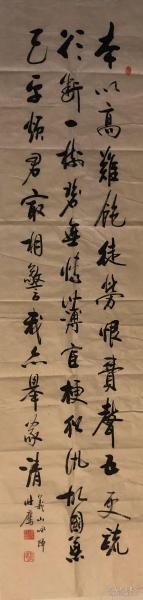 本以高難飽徒勞恨費聲五更疏
欲斷一樹碧無情薄宦梗猶汎故園蕪
已平煩君最相警我亦舉家清
義山咏蟬